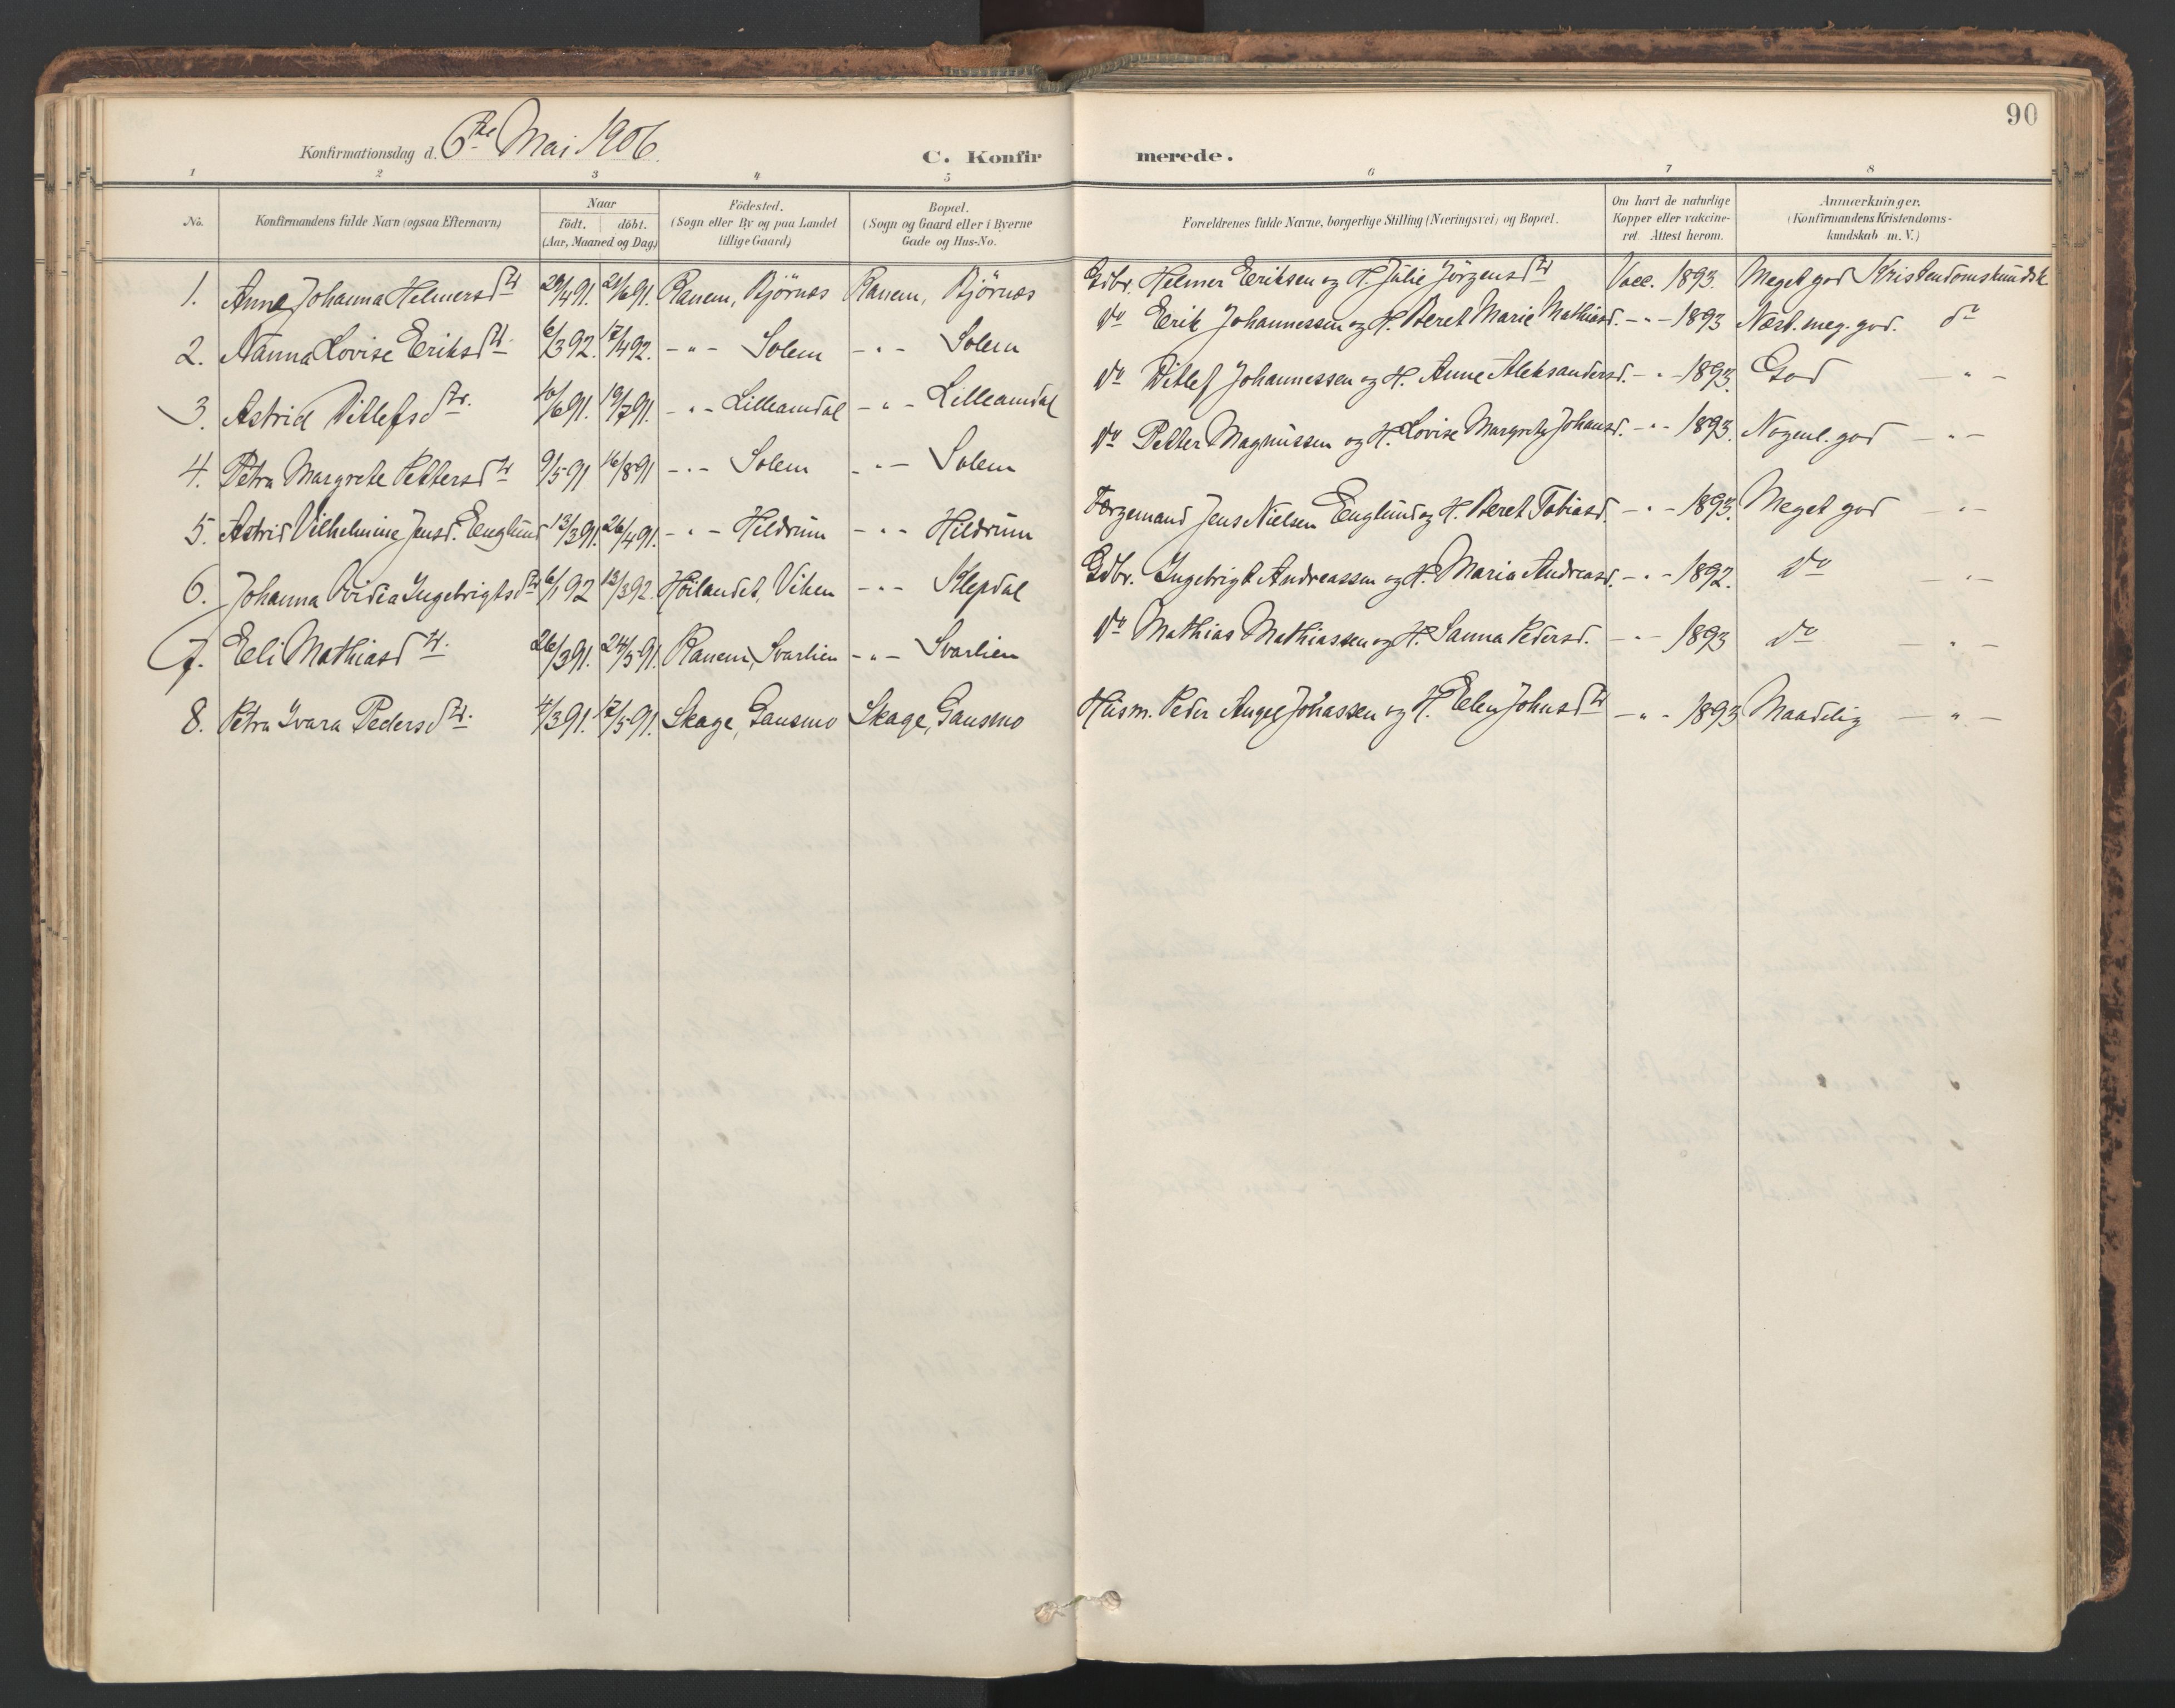 90
Konfirmationsdag d. 6te Mai 1906.
C. Konfirmerede.
1 2 3 4 5 6 7 8
No. | Konfirmandens fulde Navn (ogsaa Efternavn) | Naar födt. döbt. (Aar, Maaned og Dag) | Födested. (Sogn eller By og paa Landet tillige Gaard) | Bopæl. (Sogn og Gaard eller i Byerne Gade og Hus-No. | Forældrenes fulde Navne, borgerlige Stilling (Næringsvei) og Bopæl. | Om havt de naturlige Kopper eller vakcineret. Attest herom. | Anmærkninger. (Konfirmandens Kristendomskundskab m. V.)
1. Anna Johanna Helmersdtr 29/4 91. 21/6 91. Ranem, Bjørnes Ranem, Bjørnes Gdbr. Helmer Eriksen og H. Julie Jørgensdtr Vacc. 1893. Meget god Kristendomskundsk
2. Nanna Lovise Eriksdtr. 6/3 92. 17/4 92. - " - Solem - " - Solem do Erik Johannessen og H. Beret Marie Mathiasd. - " - 1893 Næst. meg. god. do
3. Astrid Ditlefsdtr. 10/6 91. 19/7 91. - " - Lilleamdal - " - Lilleamdal do Ditlef Johannessen og H. Anne Aleksandersd. - " - 1893. God - " -
4. Petra Margrete Pettersdtr 9/5 91 16/8 91 - " - Solem - " - Solem do Petter Magnussen og H. Lovise Margrete Johansd. - " - 1893. Nogenl. god - " -
5. Astrid Vilhelmine Jensd. Englund 13/3 91. 26/4 91. - " - Hildrum - " - Hildrum Færgemand Jens Nielsen Englund og H. Beret Tobiasd. - " - 1893. Meget god - " -
6. Johanna Ovidia Ingebrigtsdtr 6/1 92 13/3 92. Høilandet, Viken - " - Klepdal Gdbr. Ingebrigt Andreassen og H. Maria Andreasd. - " - 1892. do " -
7. Eli Mathiasdtr. 26/3 91. 24/5 91. Ranem, Svarlien - " - Svarlien do Mathias Mathiassen og H. Sanna Pedersd. - " - 1893 do - " -
8. Petra Ivara Pedersdtr. 4/3 91. 17/5 91. Skage, Gansmo Skage, Gansmo Husm. Peder Angel Johassen og H. Elen Johnsdtr - " - 1893 Maadelig - " -